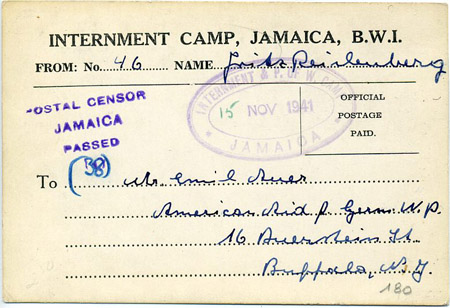 INTERNMENT CAMP, JAMAICA, B.W.I.
FROM: No. 46 NAME Fritz
INTERNMENT & P. OF W. CAMP
15 NOV 1941
JAMAICA
POSTAL CENSOR
JAMAICA
PASSED
(38)
OFFICIAL
POSTAGE
PAID.
To Mr. Emil Auer
American Aid f. Germ. W.P.
16 St.
Buffalo, N.Y.
180